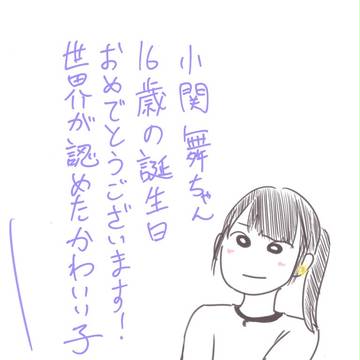 小関舞ちゃん
16歳の誕生日
おめでとうございます！
世界が認めたかわいい子